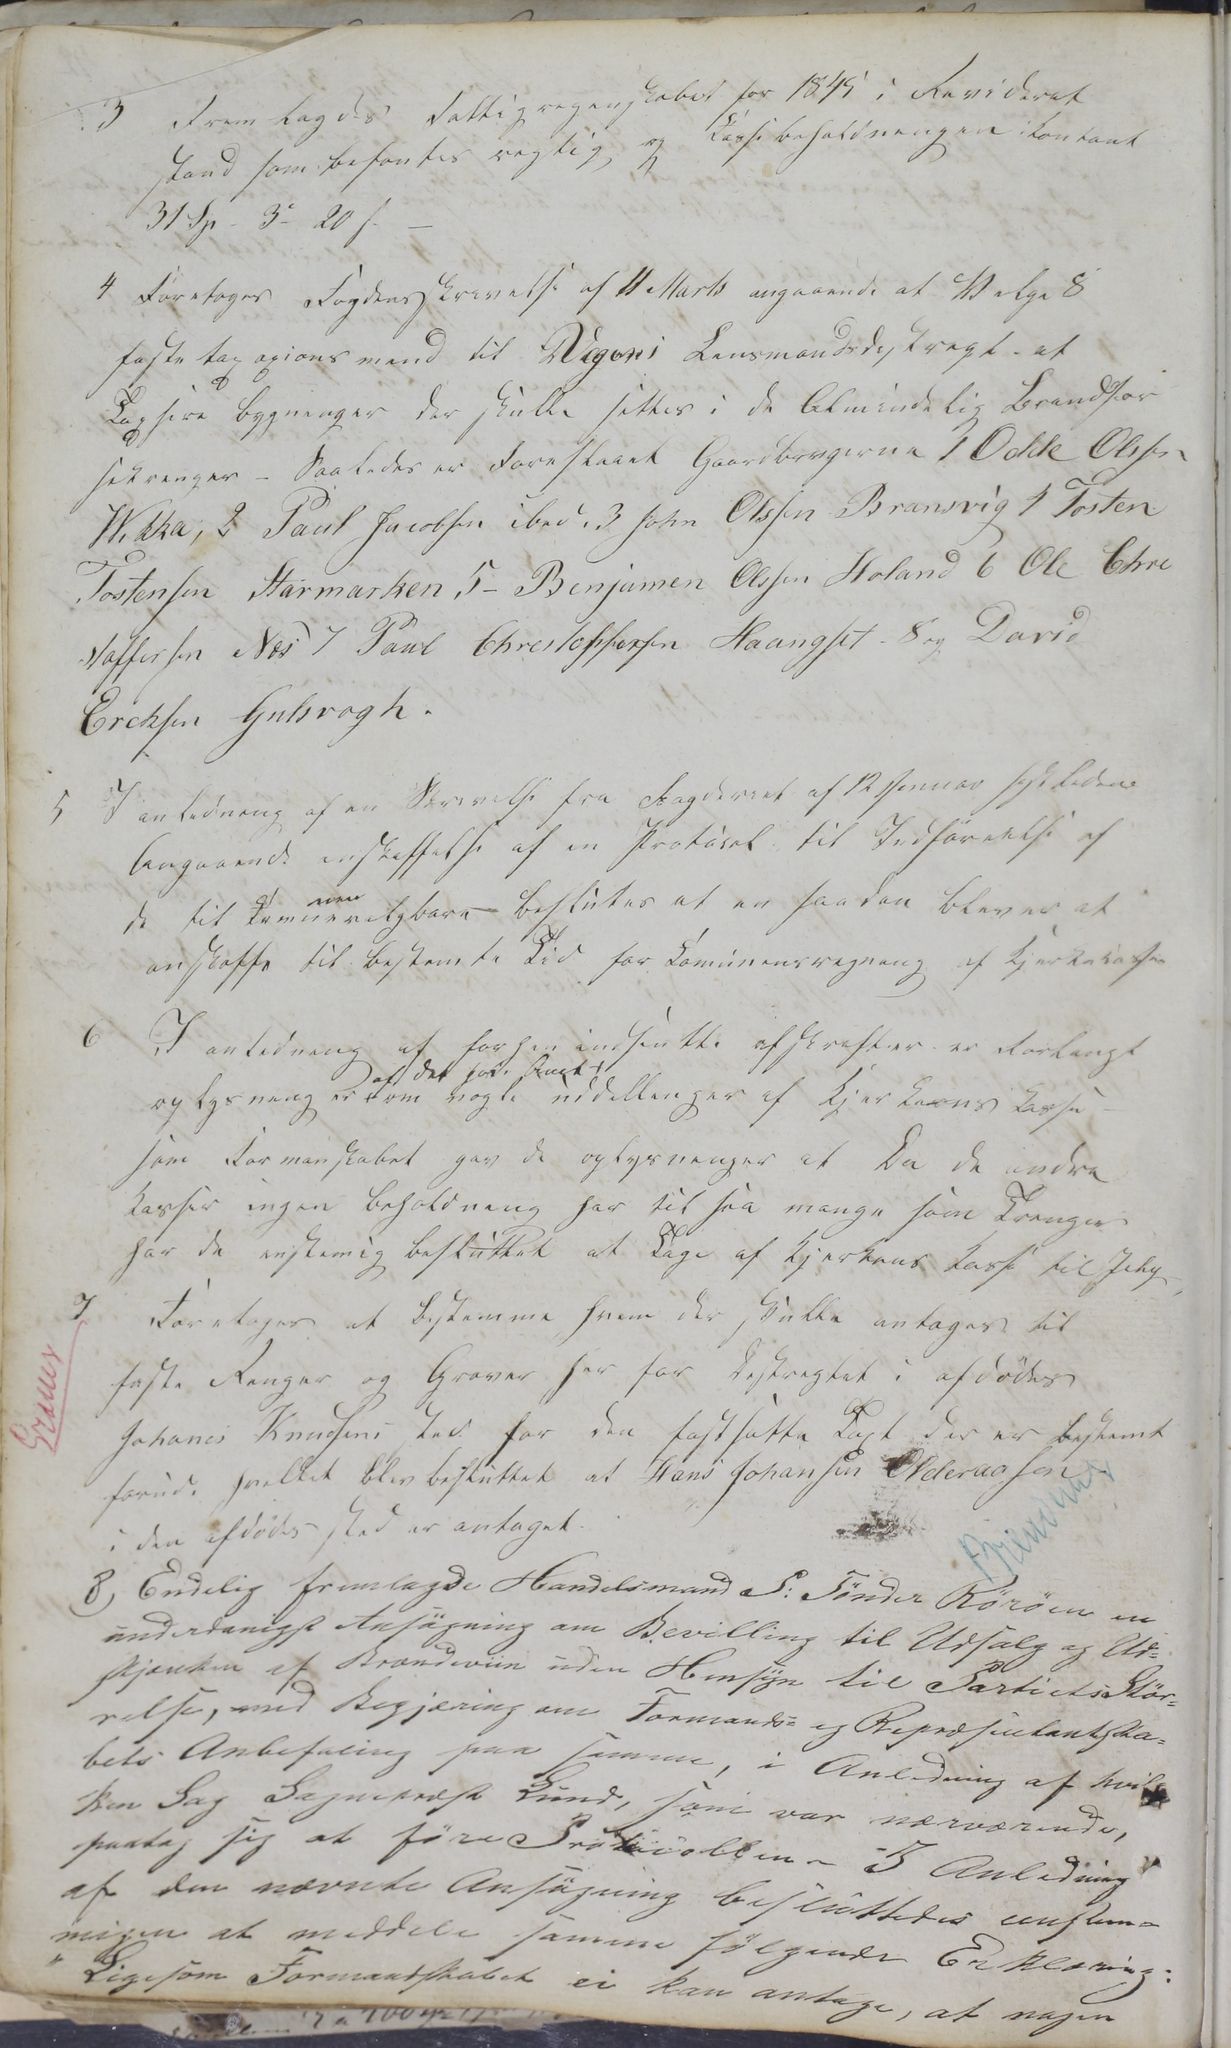 3 Fremlagdes Fattigregenskabet for 1845 i Revideret
stand som befantes regtig, og Kassebeholdningen i Kontant
31 Sp - 3 - 20 s. —
4 Foretoges Fogdens skrivelse af 11 Marts angaaende at Velge 8
faste taxasions mend til Vegens Lensmandsdestregt - at
Taxsere bygninger der skulle settes i de Almindelig Brandfor
sikrenger - Saaledes er Foreslaaet Gaardbrugerne 1 Odde Olssen
Wikka, 2 Paul Jacobsen ibed. 3 John Olssen Bransvig 4 Tosten
Tostensen Harmarken 5 - Benjamen Olssen Holand 6 Ole Chre
stoffersen Nes 7 Paul Chrestoffersen Haangset - 8 og David
Ereksen Gulsvogh.
5 I anledneng af en Skrivelse fra Fogderiet af 12 Januar sistledene
Angaaende anskaffelse af en Protocol til Indförrelse af
de til stemmeretybare beslutes at en saadan blever at
anskaffe til bestemte Tid for Komunens regneng af Kjerkekassen
6 I anledneng af forhen indsentte afskrefter er Forlangt
af det höie Amt
oplysneng er om nogle uddellenger af Kjerkens Kasse
som Formanskabet gav de oplysnenger at Da de andre
kasser ingen beholdneng har til saa mange som Trenger
har de enstemig besluttet at Tage af Kjerkens Kasse til
7 Foretoges at bestemme hvem der skulle antages til
Graver
faste Renger og Graver her for destregtet i afdödes
Johanes Knudsens sted for den fastsatte Taxt der er bestemt
forud. hvelket blev besluttet at Hans Johansen Olderaasen
i den afdödes sted er antaget.
Brændeviin
8) Endelig fremlagde Handelsmand P: Tönder Röröen en
underdanigst Ansögning om Bevilling til Udsalg og Ud=
skjænken af Brændeviin uden Hensyn til Partiets Stör=
relse, med Begjæring om Formands= og Repræsentantska=
bets Anbefaling paa samme, i Anledning af hvil=
ken Sag Sognepræst Lund, som var nærværende,
paatog sig at före Protocollen - I Anledning
af den nævnte Ansögning besluttedes eenstem=
migen at meddele samme fölgende Erklæring:
"Ligesom Formandskabet ei kan antage, at nogen